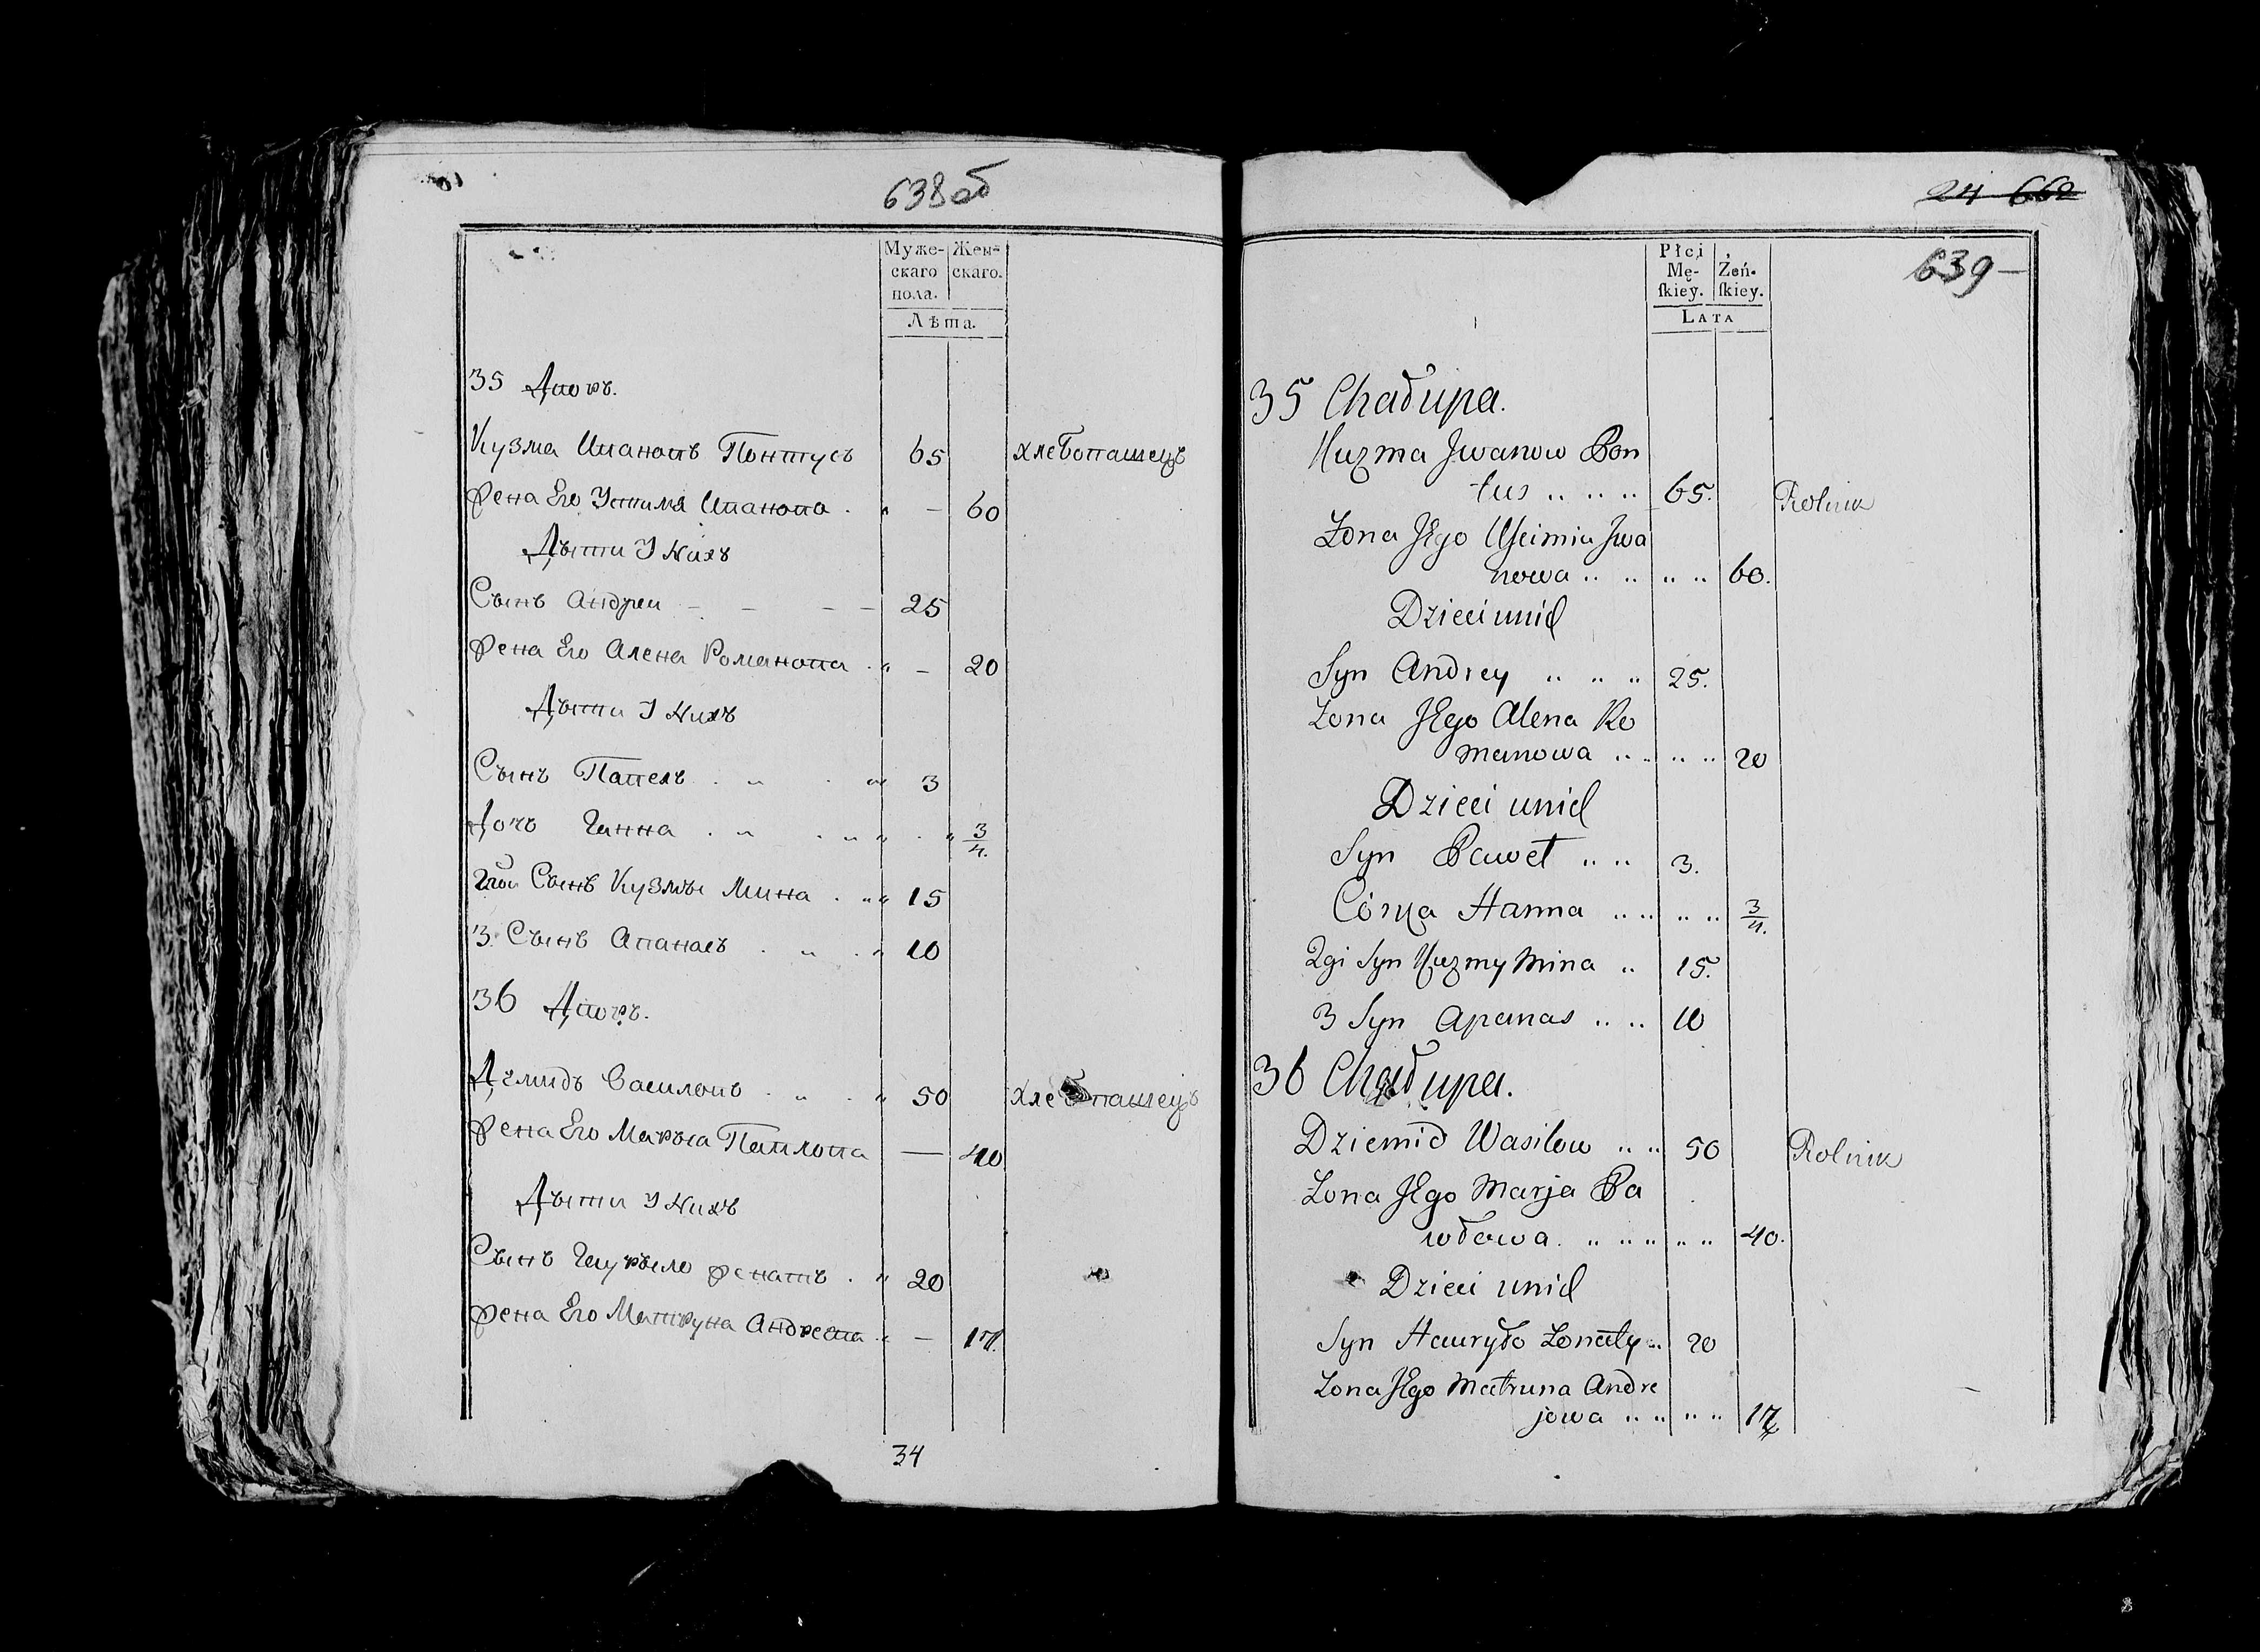 638об
Муже-
скаго
пола.
Жен-
скаго.
Лѣта.
35 Дворъ.
Кузма Ивановъ Понтусъ 65 хлебопашецъ
Жена Его Устимя Иванова . „ – 60
Дѣти У Нихъ
Сынъ Андреи – – – – 25
Жена Его Алена Романова . „ – 20
Дѣти У Нихъ
Сынъ Павелъ . „ . „ 3
Дочь Ганна . „ . „ „ . „ 3/4.
2гои Сынъ Кузмы Мина . „ „ 15
3. Сынъ Апанасъ . „ . „ 10
36 Дворъ.
Демидъ Василовъ . „ . „ 50 хлебопашецъ
Жена Его Марья Павлова — 40
Дѣти У Нихъ
Сынъ Гаурыло женатъ . „ 20
Жена Его Матруна Андреева . „ – 17.
34
24 662
639 –
Płci
Mę-
ſkiey.
Żeń-
ſkiey.
LATA
35 Chałupa.
Kuzma Jwanow Pon
tus .. .. .. 65. Rolnik
Zona Jego Uscimia Jwa
nowa .. .. .. .. 60.
Dzieci unich
Syn Andrey .. .. .. 25.
Zona Jego Alena Ro
manowa .. .. .. .. 20
Dzieci unich
Syn Paweł .. .. 3.
Córka Hanna .. .. .. .. 3/4.
2gi Syn Kuzmy Mina .. 15.
3 Syn Apanas .. .. 10
36 Chałupa.
Dziemid Wasilow .. .. 50 Rolnik
Zona Jego Marja Pa
włowa. .. .. .. .. .. 40.
Dzieci unich
Syn Hauryło Zonaty .. 20
Zona Jego Matruna Andre
jowa .. .. .. .. 17